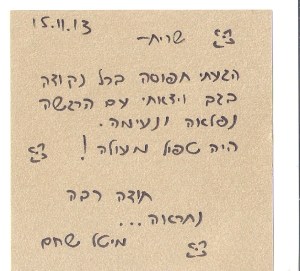 15.11.13
שרית-
הגעתי תפוסה בכל נקודה
בגב ויצאתי עם הרגשה
נפלאה ונעימה.
היה טפול מעולה!
תודה רבה
נתראה...
מיטל שחם